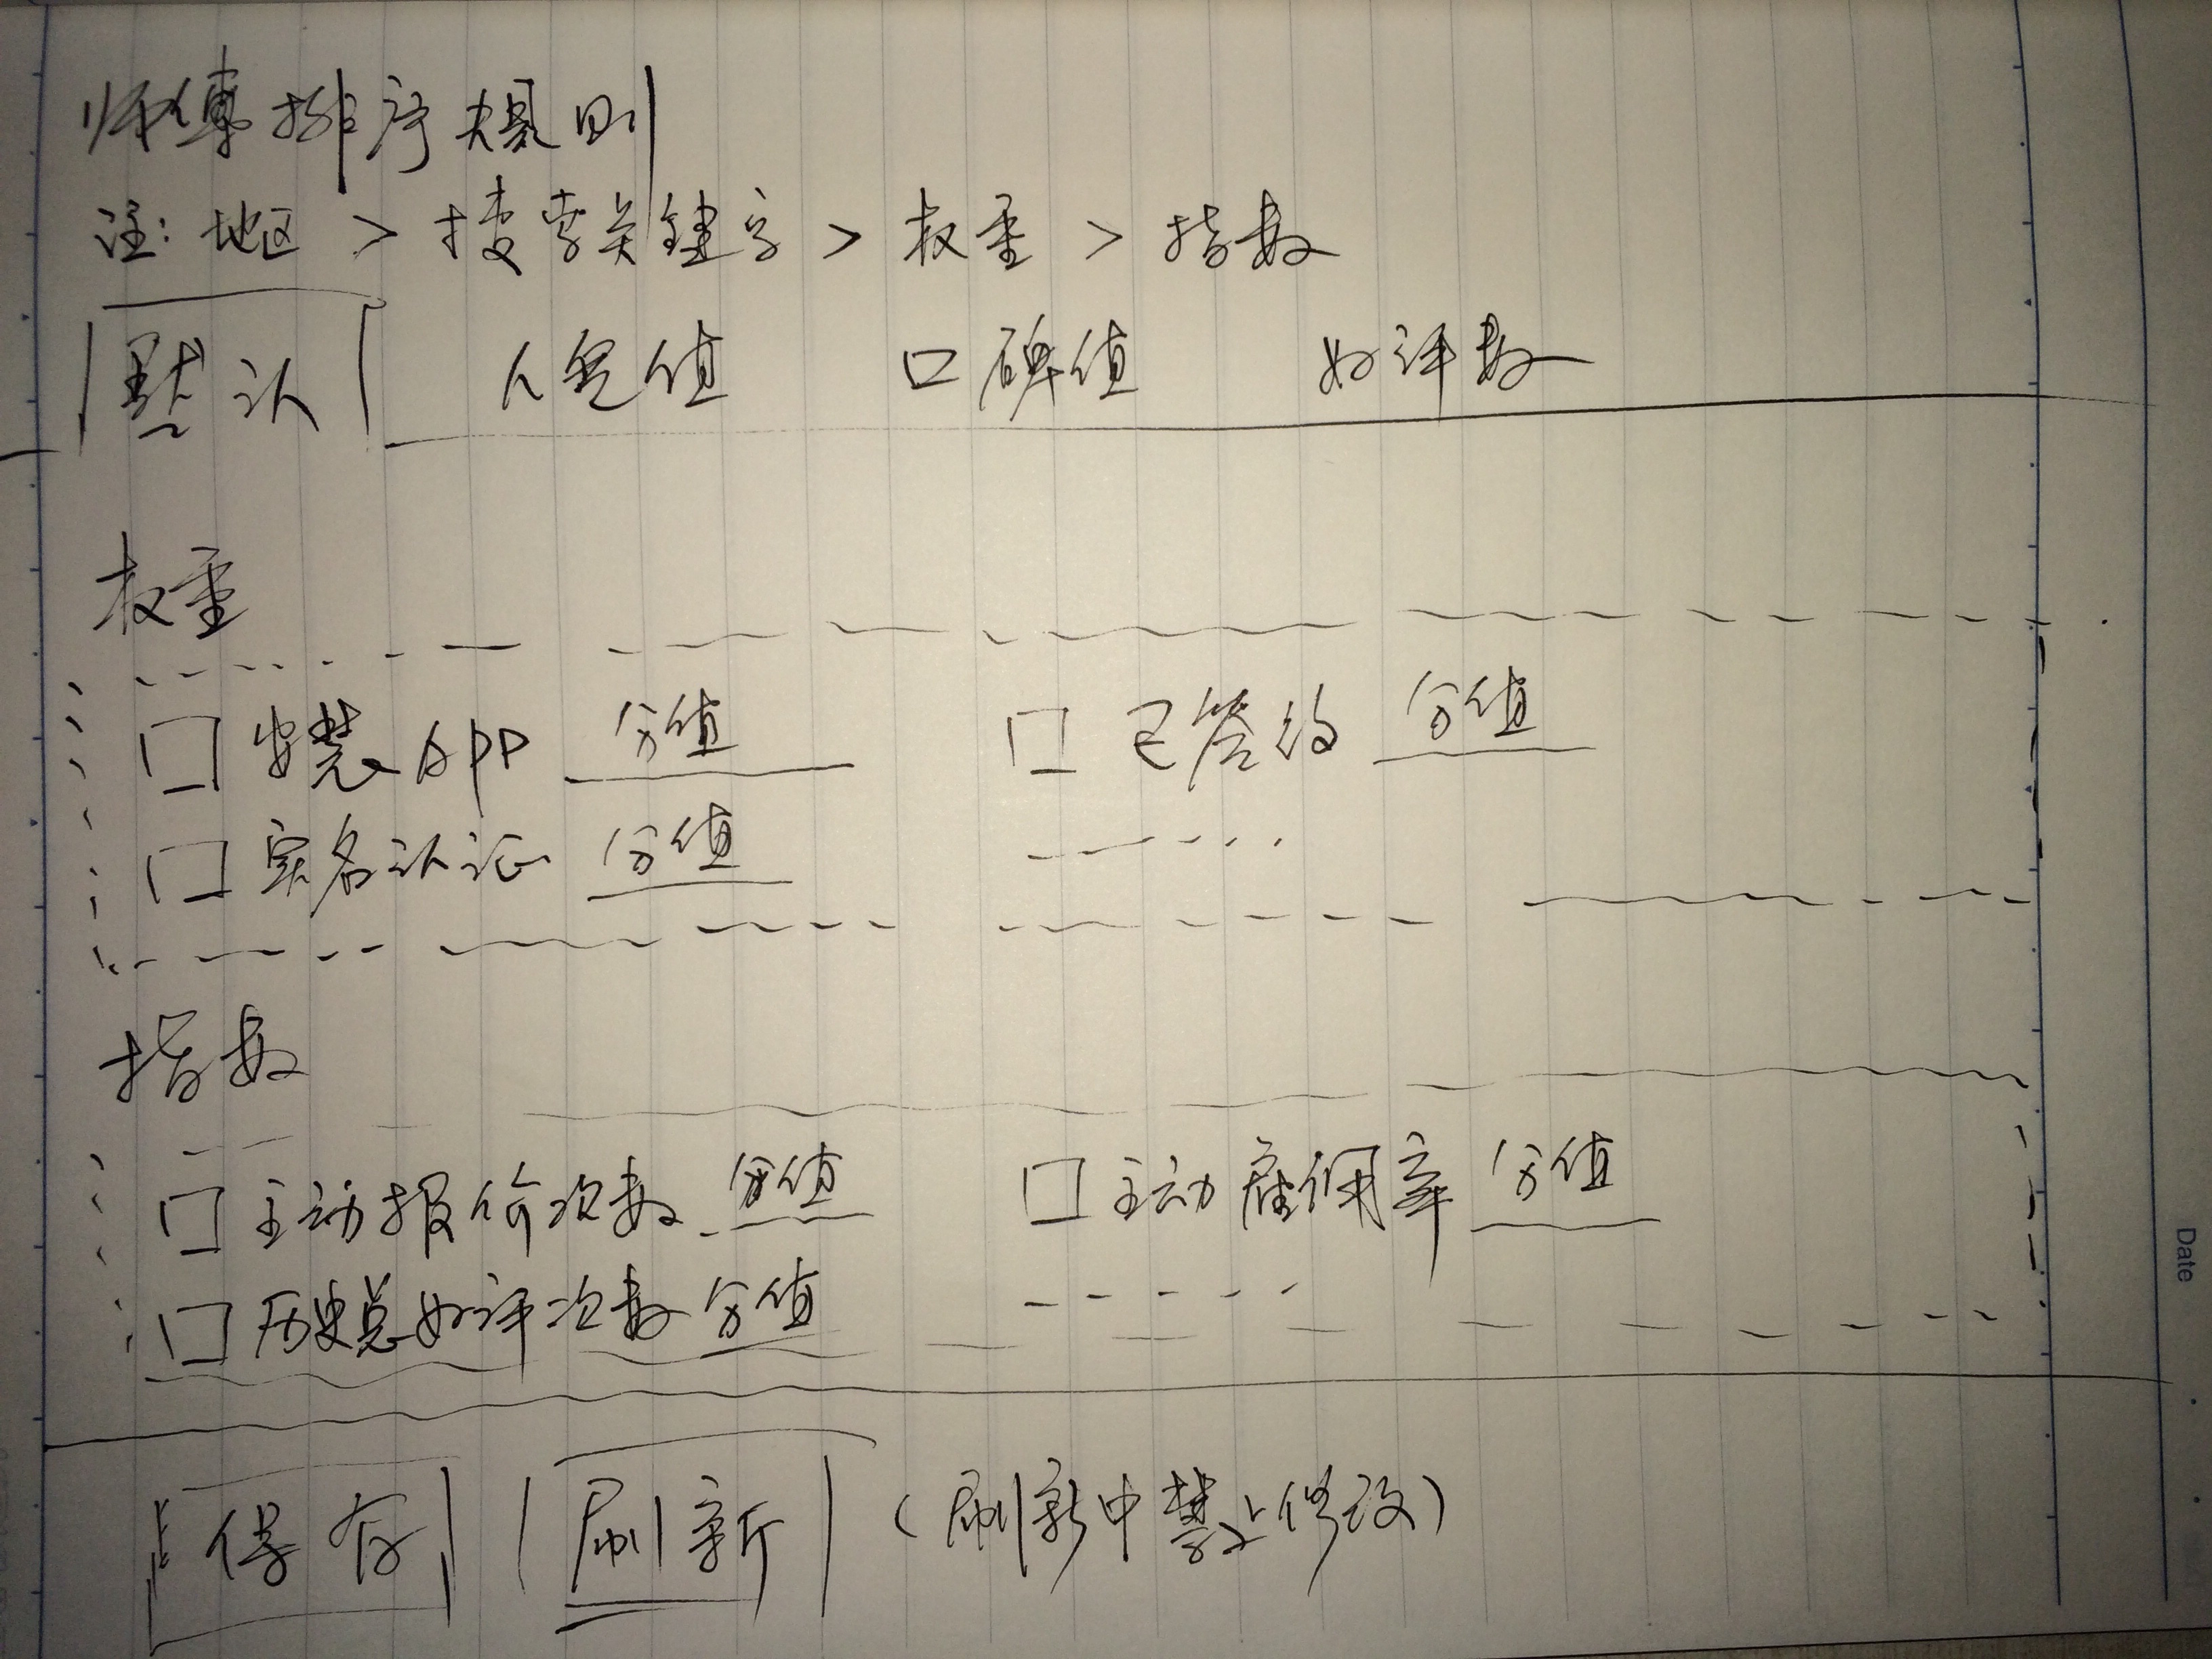 师傅排序规则
注: 地区 > 搜索关键字 > 权重 > 指数
默认 人气值 口碑值 好评数
权重
安装APP 分值 已签约 分值
实名认证 分值
指数
主动报价次数 分值 主动雇佣率 分值
历史总好评次数 分值
保存 刷新 (刷新中禁止修改)
Date